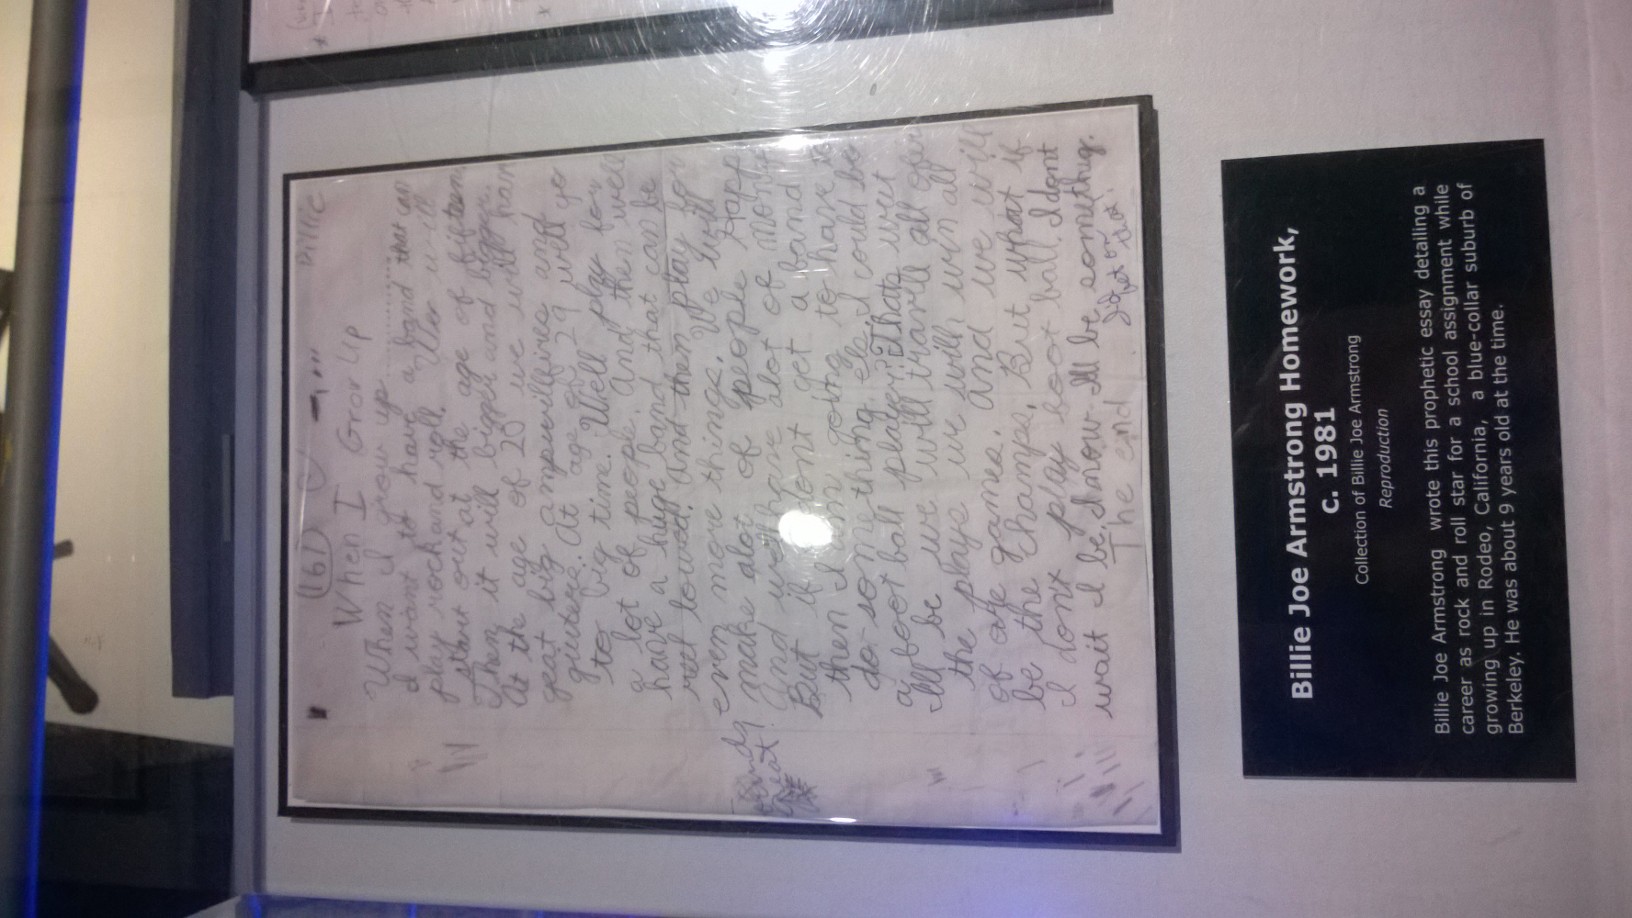 161
Billie
When I Grow Up
When I grow up
I want to have a band that can
play rock and roll.
start out at the age of
Then it will bigger and bigger.
At the age of 20 we will have
geat big ampuwilfires and
guitars. At age of 29 will go
to big time. Well play for
a lot of peopl. And then well
have a huge band that can be
reel lowed. And then play for
even more things. We will
make alot of people happ
And we have alot of money
But if I dont get a band
then I in going to have to
do something els I could be
a foot ball player. Thats wet
Ill be we will travel all ofer
the plays we will win all
of are games. And we will
be the champs. But what if
I dont play foot ball. I dont
wait I be. I know Ill be something.
The end!
Great!
Billie Joe Armstrong Homework,
c. 1981
Collection of Billie Joe Armstrong
Reproduction
Billie Joe Armstrong wrote this prophetic essay detailing a
career as rock and roll star for a school assignment while
growing up in Rodeo, California, a blue-collar suburb of
Berkeley. He was about 9 years old at the time.